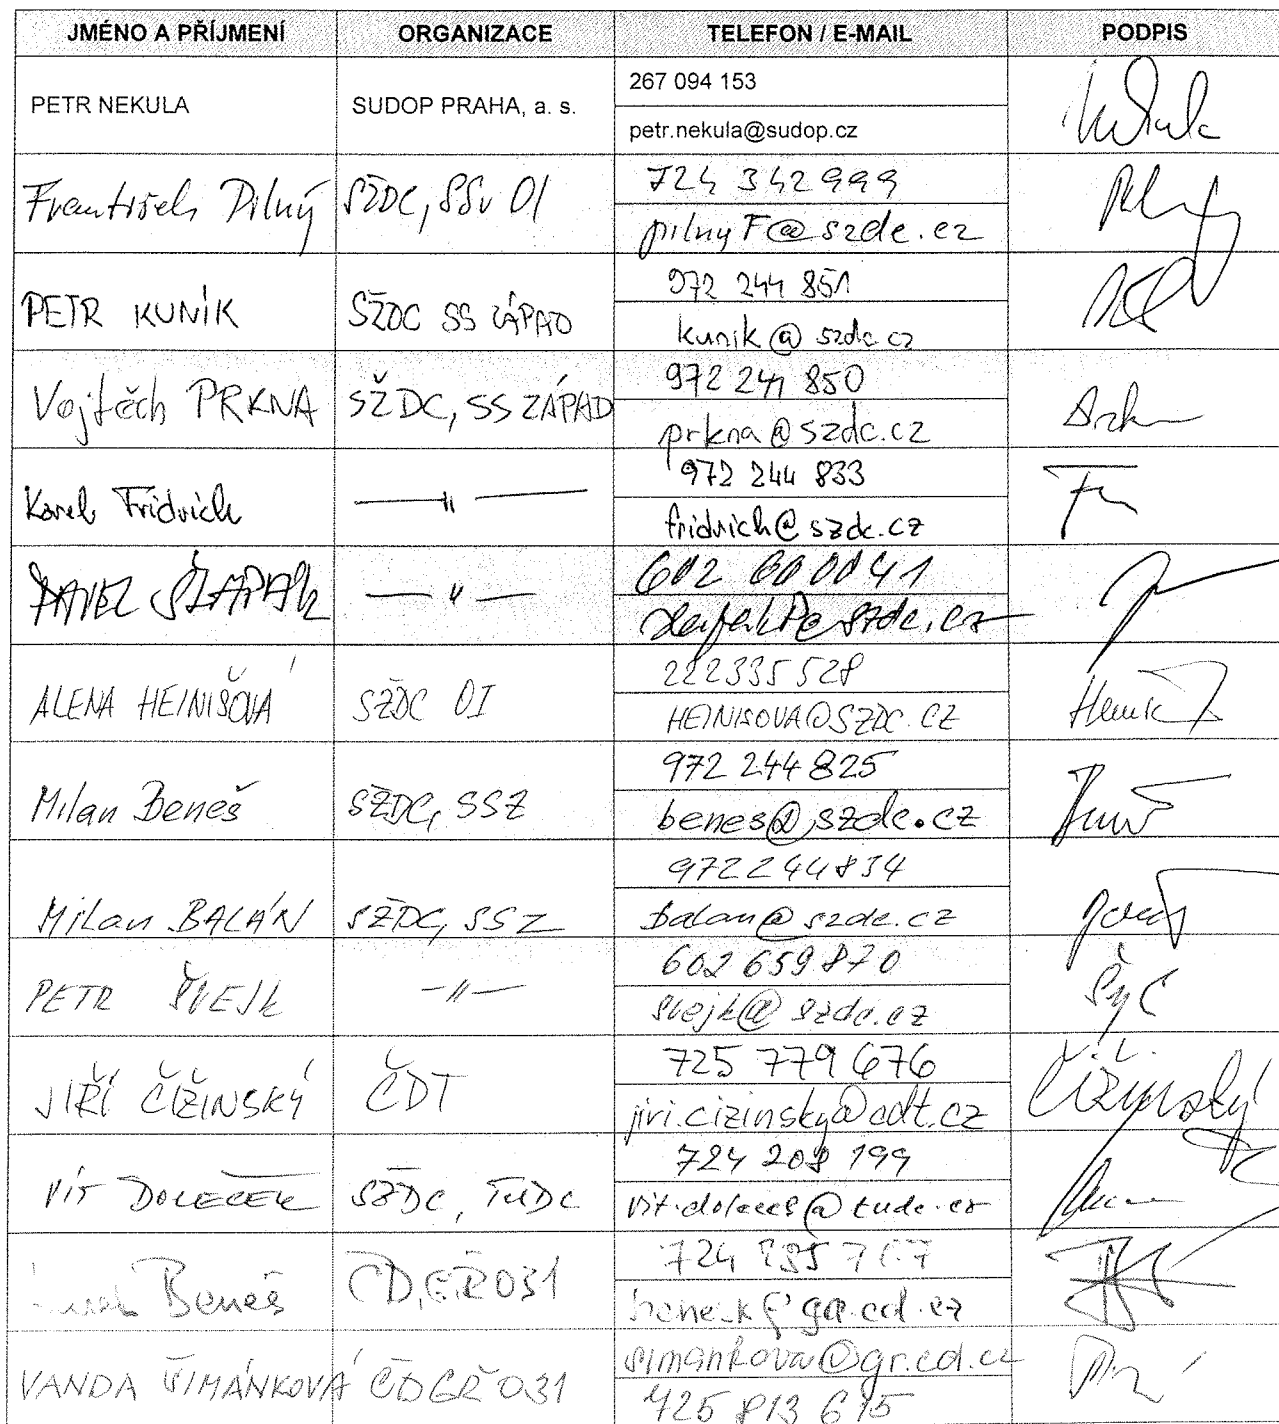 JMÉNO A PŘÍJMENÍ ORGANIZACE TELEFON / E-MAIL PODPIS
PETR NEKULA SUDOP PRAHA, a. s. 267 094 153
petr.nekula@sudop.cz
František Pilný SŽDC, SSv OI 724 342 999
pilnyF@szdc.cz
PETR KUNÍK SŽDC SS ZÁPAD 972 244 851
kunik@szdc.cz
Vojtěch PRKNA SŽDC, SS ZÁPAD 972 241 850
prkna@szdc.cz
Karel Fridrich —〃— 972 244 833
fridrich@szdc.cz
PAVEL —〃— 602
ALENA HEINIŠOVÁ SŽDC OI 222335528
HEINISOVA@SZDC.CZ
Milan Beneš SŽDC, SSZ 972 244 825
benes@szdc.cz
Milan BALÁN SŽDC, SSZ 972244834
balan@szdc.cz
PETR ŠVEJK —〃— 602 659 870
svejk@szdc.cz
JIŘÍ ČIŽINSKÝ ČDT 725 779 676 Čižinský
jiri.cizinsky@cdt.cz
VÍT DOLEČEK SŽDC, TÚDC 724 208 199
vit.dolecek@tudc.cz
Beneš ČD, GŘ 031 724
VANDA ŠIMÁNKOVÁ ČD GŘ 031 simankova@gr.cd.cz
725 813 615